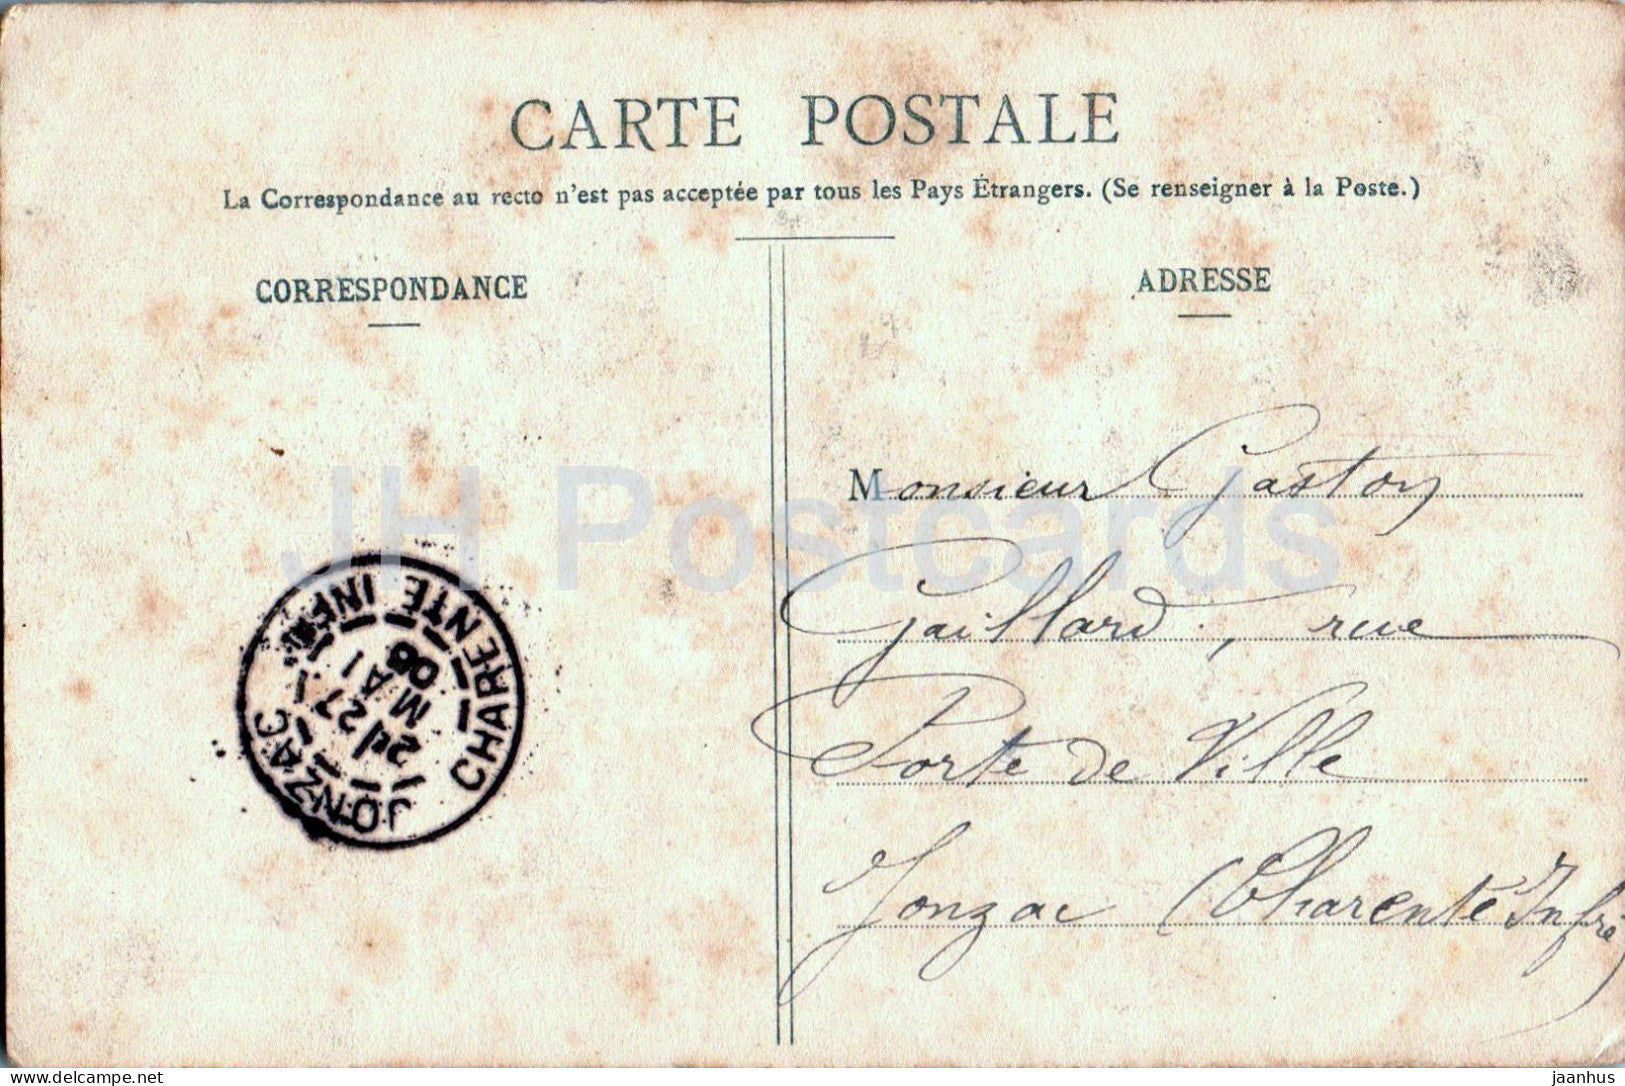 CARTE POSTALE
La Correspondance au recto n'est pas acceptée par tous les Pays Étrangers. (Se renseigner à la Poste.)
CORRESPONDANCE
ADRESSE
Monsieur Gaston
Gaillard, rue
Porte de Ville
Jonzac (Charente Infre)
JONZAC
CHARENTE INFRE
27
MAI
06
JH Postcards
delcampe.net
jaanhus